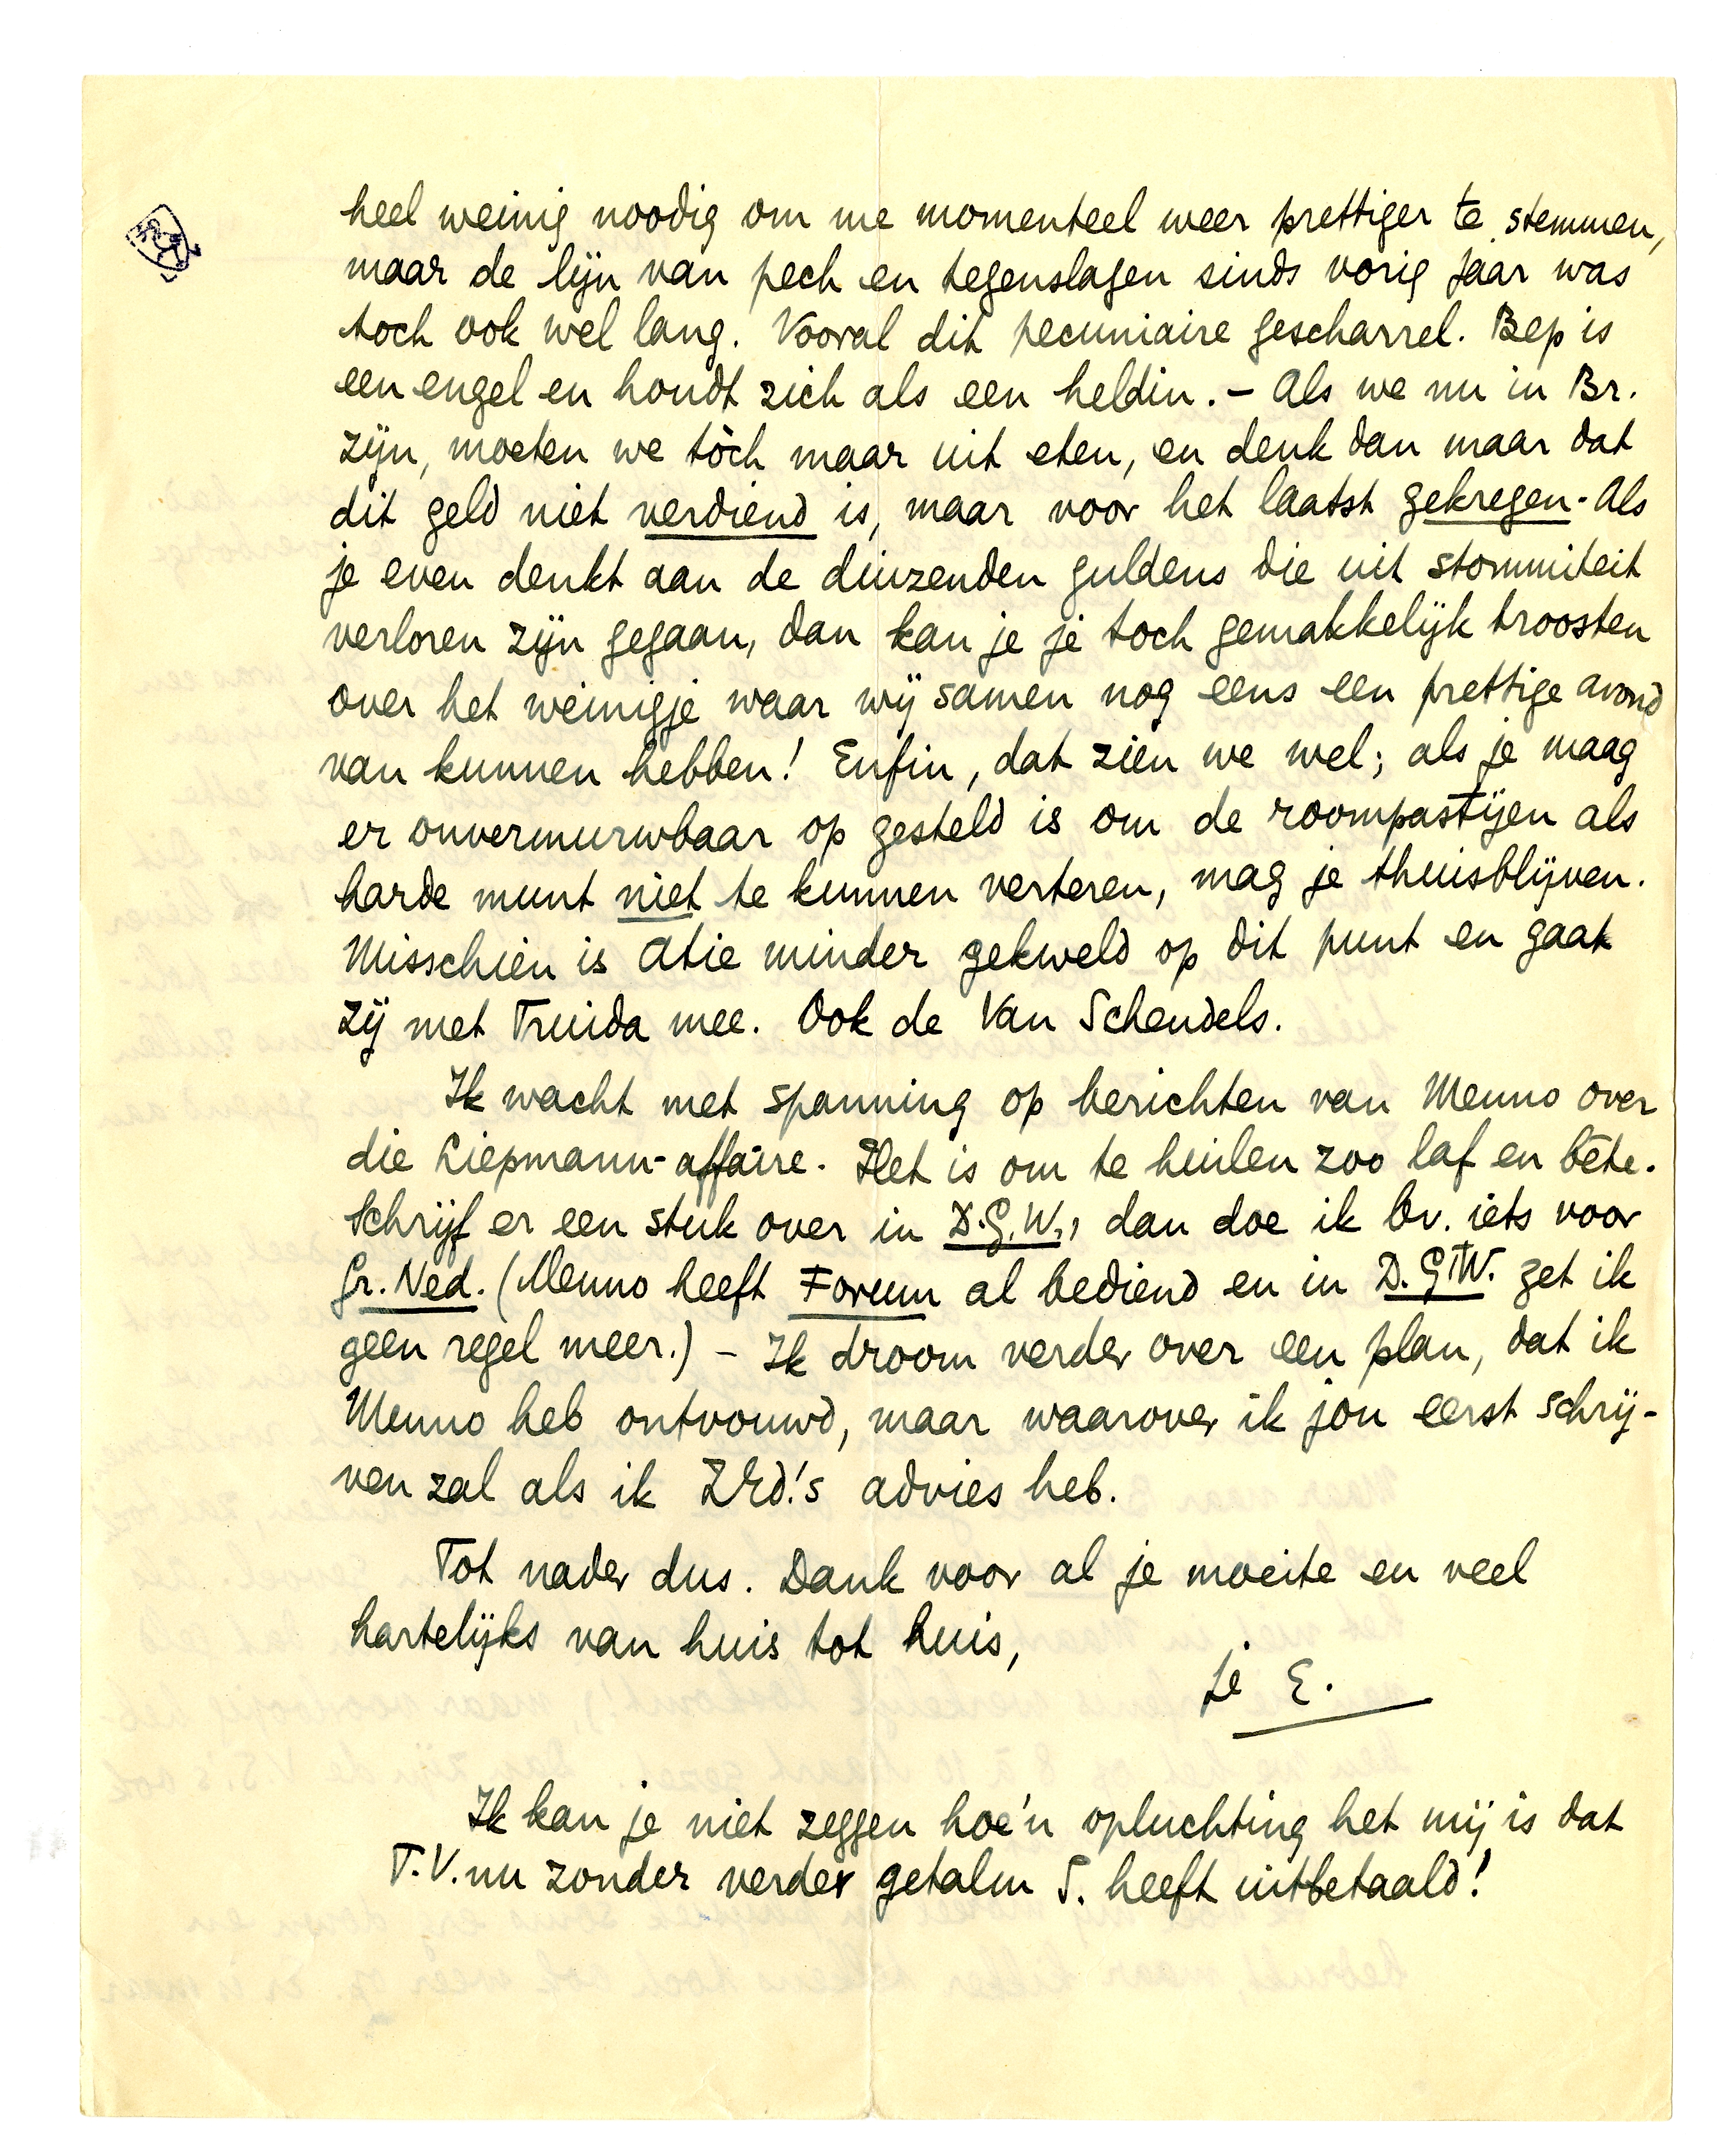 heel weinig noodig om me momenteel weer prettiger te stemmen,
maar de lijn van pech en tegenslagen sinds vorig jaar was
toch ook wel lang. Vooral dit pecuniaire gescharrel. Bep is
een engel en houdt zich als een heldin. – Als we nu in Br.
zijn, moeten we tòch maar uit eten, en denk dan maar dat
dit geld niet verdiend is, maar voor het laatst gekregen. Als
je even denkt aan de duizenden guldens die uit stommiteit
verloren zijn gegaan, dan kan je je toch gemakkelijk troosten
over het weinigje waar wij samen nog eens een prettige avond
van kunnen hebben! Enfin, dat zien we wel; als je maag
er onvermurwbaar op gesteld is om de roompasteijen als
harde munt niet te kunnen verteren, mag je thuisblijven.
Misschien is Atie minder gekweld op dit punt en gaat
zij met Truida mee. Ook de Van Schendels.
Ik wacht met spanning op berichten van Menno over
die Liepmann-affaire. Het is om te huilen zoo laf en bête.
Schrijf er een stuk over in D.G.W., dan doe ik bv. iets voor
Gr. Ned. (Menno heeft Forum al bediend en in D.G.W. zet ik
geen regel meer.) – Ik droom verder over een plan, dat ik
Menno heb ontvouwd, maar waarover ik jou eerst schrij-
ven zal als ik ZEd.'s advies heb.
Tot nader dus. Dank voor al je moeite en veel
hartelijks van huis tot huis,
je E.
Ik kan je niet zeggen hoe'n opluchting het mij is dat
T.V. nu zonder verder getalm S. heeft uitbetaald!